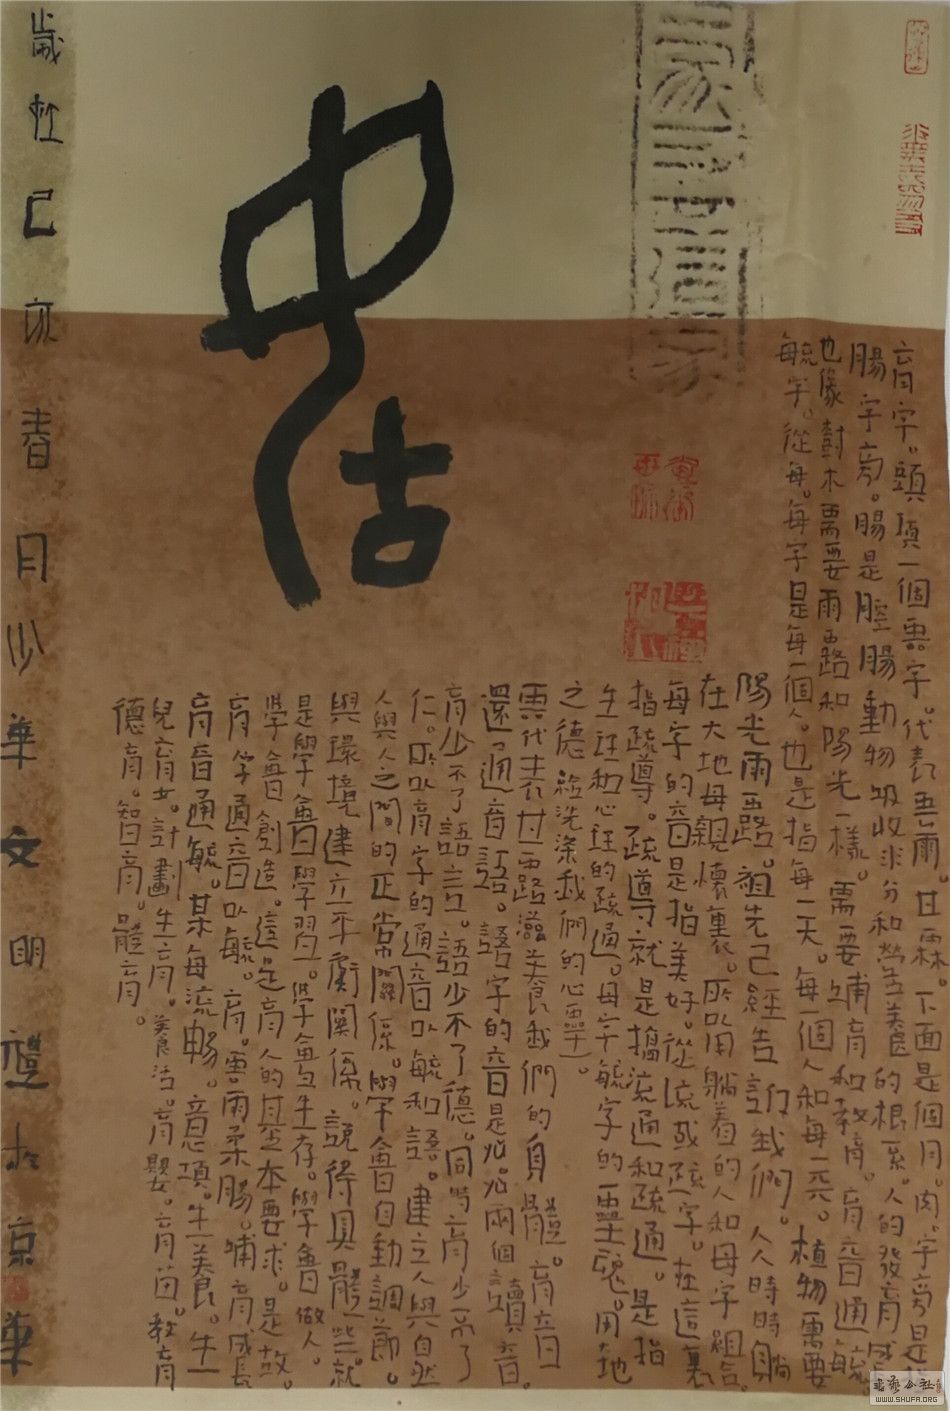 育字。頭頂一個雲字。代表雲雨。甘霖。下面是個月。肉字旁是
腸字旁。腸是腔腸動物吸收水分和營養的根系。人的發育成長
也像樹木需要雨露和陽光一樣。需要哺育和教育。育音通毓。
毓字。從每。每字是每一個人。也是指每一天。每一個人和每一天。植物需要
陽光雨露。祖先已經告訴我們。人人時時躺
在大地母親懷裏。所以用躺着的人和母字組合。
每字的音是指美好。從㐬或疏字。在這裏
指疏導。疏導就是搞流通和疏通。是指
生理和心理的疏通。母字毓字的靈魂。用地
之德能洗滌我們的心靈。
雲代表甘露滋養我們的身體。育音
還通音語。語字的音是 兩個讀音。
育少不了語言。語少不了德。同時育少不了
仁。所以育字的通音以毓和語。建立人與自然
人與人之間的正常關係。學會自動調節。
與環境建立平衡關係。說得具體一些就
是學會學習。學會生存。學會做人。
學會創造。這是育人的基本要求。是故。
育字通音以毓。育。雲雨柔腸。哺育成長
育音通毓。某每流暢。意項。生養。生
兒育女。計劃生育。養活。育嬰。育苗。教育
德育。智育。體育。
歲在己亥春月少華文明禮於京華
WWW.SHUFA.ORG